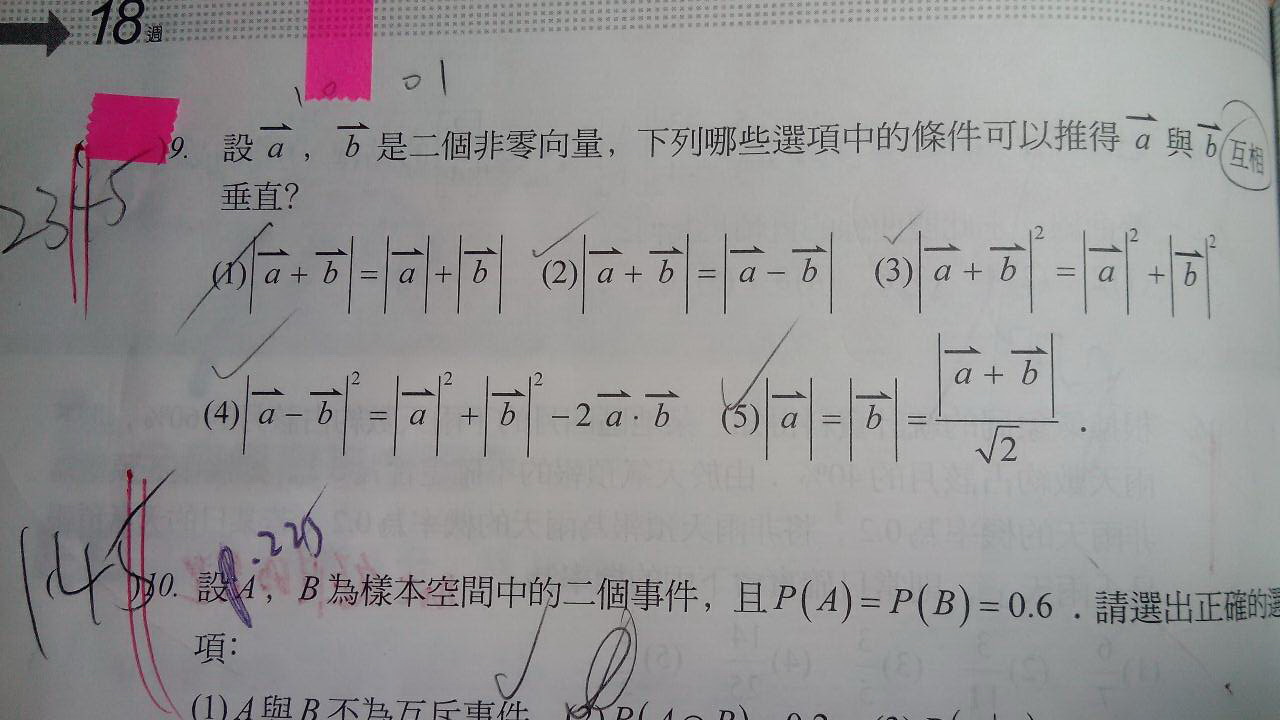 18週
10 01
2345
9. 設 $\vec{a}$，$\vec{b}$ 是二個非零向量，下列哪些選項中的條件可以推得 $\vec{a}$ 與 $\vec{b}$ 互相
垂直？
(1) $|\vec{a}+\vec{b}|=|\vec{a}|+|\vec{b}|$ (2) $|\vec{a}+\vec{b}|=|\vec{a}-\vec{b}|$ (3) $|\vec{a}+\vec{b}|^2=|\vec{a}|^2+|\vec{b}|^2$
(4) $|\vec{a}-\vec{b}|^2=|\vec{a}|^2+|\vec{b}|^2-2\vec{a}\cdot\vec{b}$ (5) $|\vec{a}|=|\vec{b}|=\frac{|\vec{a}+\vec{b}|}{\sqrt{2}}$．
145
10. 設 A，B 為樣本空間中的二個事件，且 P(A)=P(B)=0.6．請選出正確的選
項：
(1) A 與 B 不為互斥事件